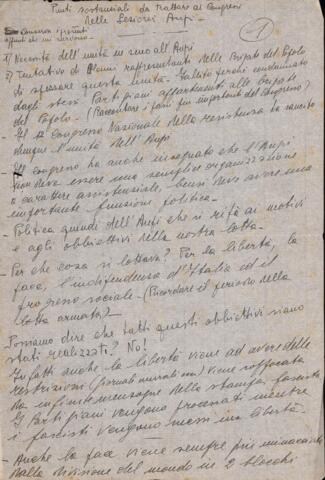 Punti sostanziali da trattare ai Congressi
delle Sezioni Anpi -
1
1) Necessità dell'unità in seno all'Anpi
2) Tentativo di alcuni rappresentanti delle Brigate del Popolo
di spezzare questa unità - Fallito perché condannato
dagli stessi Partigiani appartenenti alle brigate
del Popolo - (Raccontare i fatti più importanti del Congresso)
- Il 2° Congresso Nazionale della resistenza ha sancito
dunque l'unità dell'Anpi
Il congresso ha anche insegnato che l'Anpi
non deve essere una semplice organizzazione
a carattere assistenziale, bensì deve avere una
importante funzione politica -
- Politica quindi dell'Anpi che si rifà ai motivi
e agli obbiettivi della nostra lotta -
- Per che cosa si lottava? Per la libertà, la
pace, l'indipendenza d'Italia ed il
progresso sociale - (Ricordare il periodo della
lotta armata) -
- Possiamo dire che tutti questi obbiettivi siano
stati realizzati? No!
Infatti anche la libertà viene ad avere delle
restrizioni (giornali murali) viene soffocata
da menzogne della stampa fascista
I Partigiani vengono processati mentre
i fascisti vengono messi in libertà -
- Anche la pace viene sempre più minacciata
dalla divisione del mondo in 2 blocchi